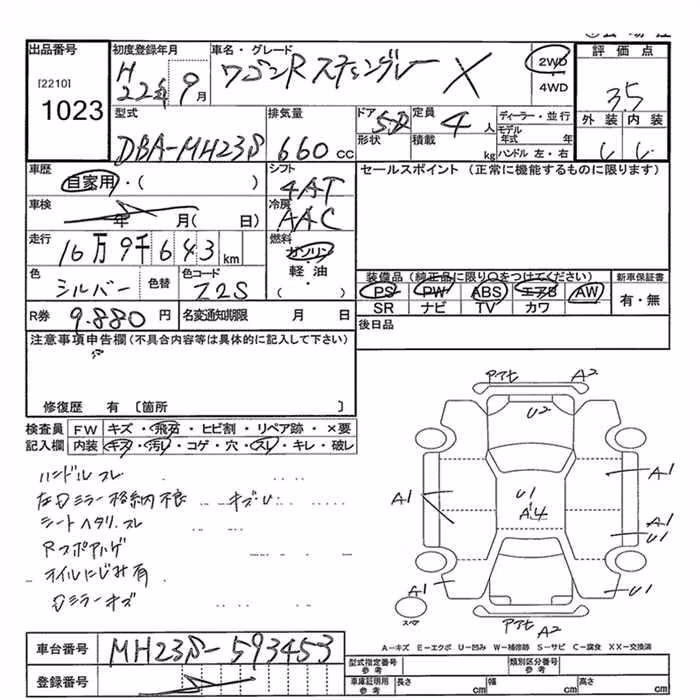 出品番号 初度登録年月 車名・グレード 評価点
[2210] H 22年 9月 ワゴンR スティングレー X 2WD・4WD 3.5
1023 型式 排気量 ドア 5D 定員 4人 ディーラー・並行 外装 内装
DBA-MH23S 660cc 形状 積載 kg モデル年式 年 ハンドル 左・右
車歴 シフト セールスポイント (正常に機能するものに限ります)
自家用・( ) 4AT
車検 年 月( 日) 冷房 AAC
走行 16万9千643km 燃料 ガソリン・軽油・( )
色 シルバー 色替 色コード Z2S
装備品 (純正品に限り○をつけてください) 新車保証書
PS PW ABS エアB AW 有・無
SR ナビ TV カワ
R券 9.880円 名変通知期限 月 日 後日品
注意事項申告欄(不具合内容等は具体的に記入して下さい)
修復歴 有 〔箇所 〕
検査員 FW キズ・飛石・ヒビ割・リペア跡・×要
記入欄 内装 キズ・汚レ・コゲ・穴・スレ・キレ・破レ
ハンドルスレ
左Dミラー格納不良 キズU
シートヘタリ.スレ
Rスポアハゲ
テイルにじみ有
Dミラーキズ
アセ A2
U2
A1 U1 A4 A1
A1 U1
A1 U1
アセ A2
スペア
A-キズ E-エクボ U-凹み W-補修跡 S-サビ C-腐食 XX-交換済
車台番号 MH23S-593453
登録番号
型式指定番号 参考 類別区分番号 参考
車庫証明用 参考 長さ cm 幅 cm 高さ cm